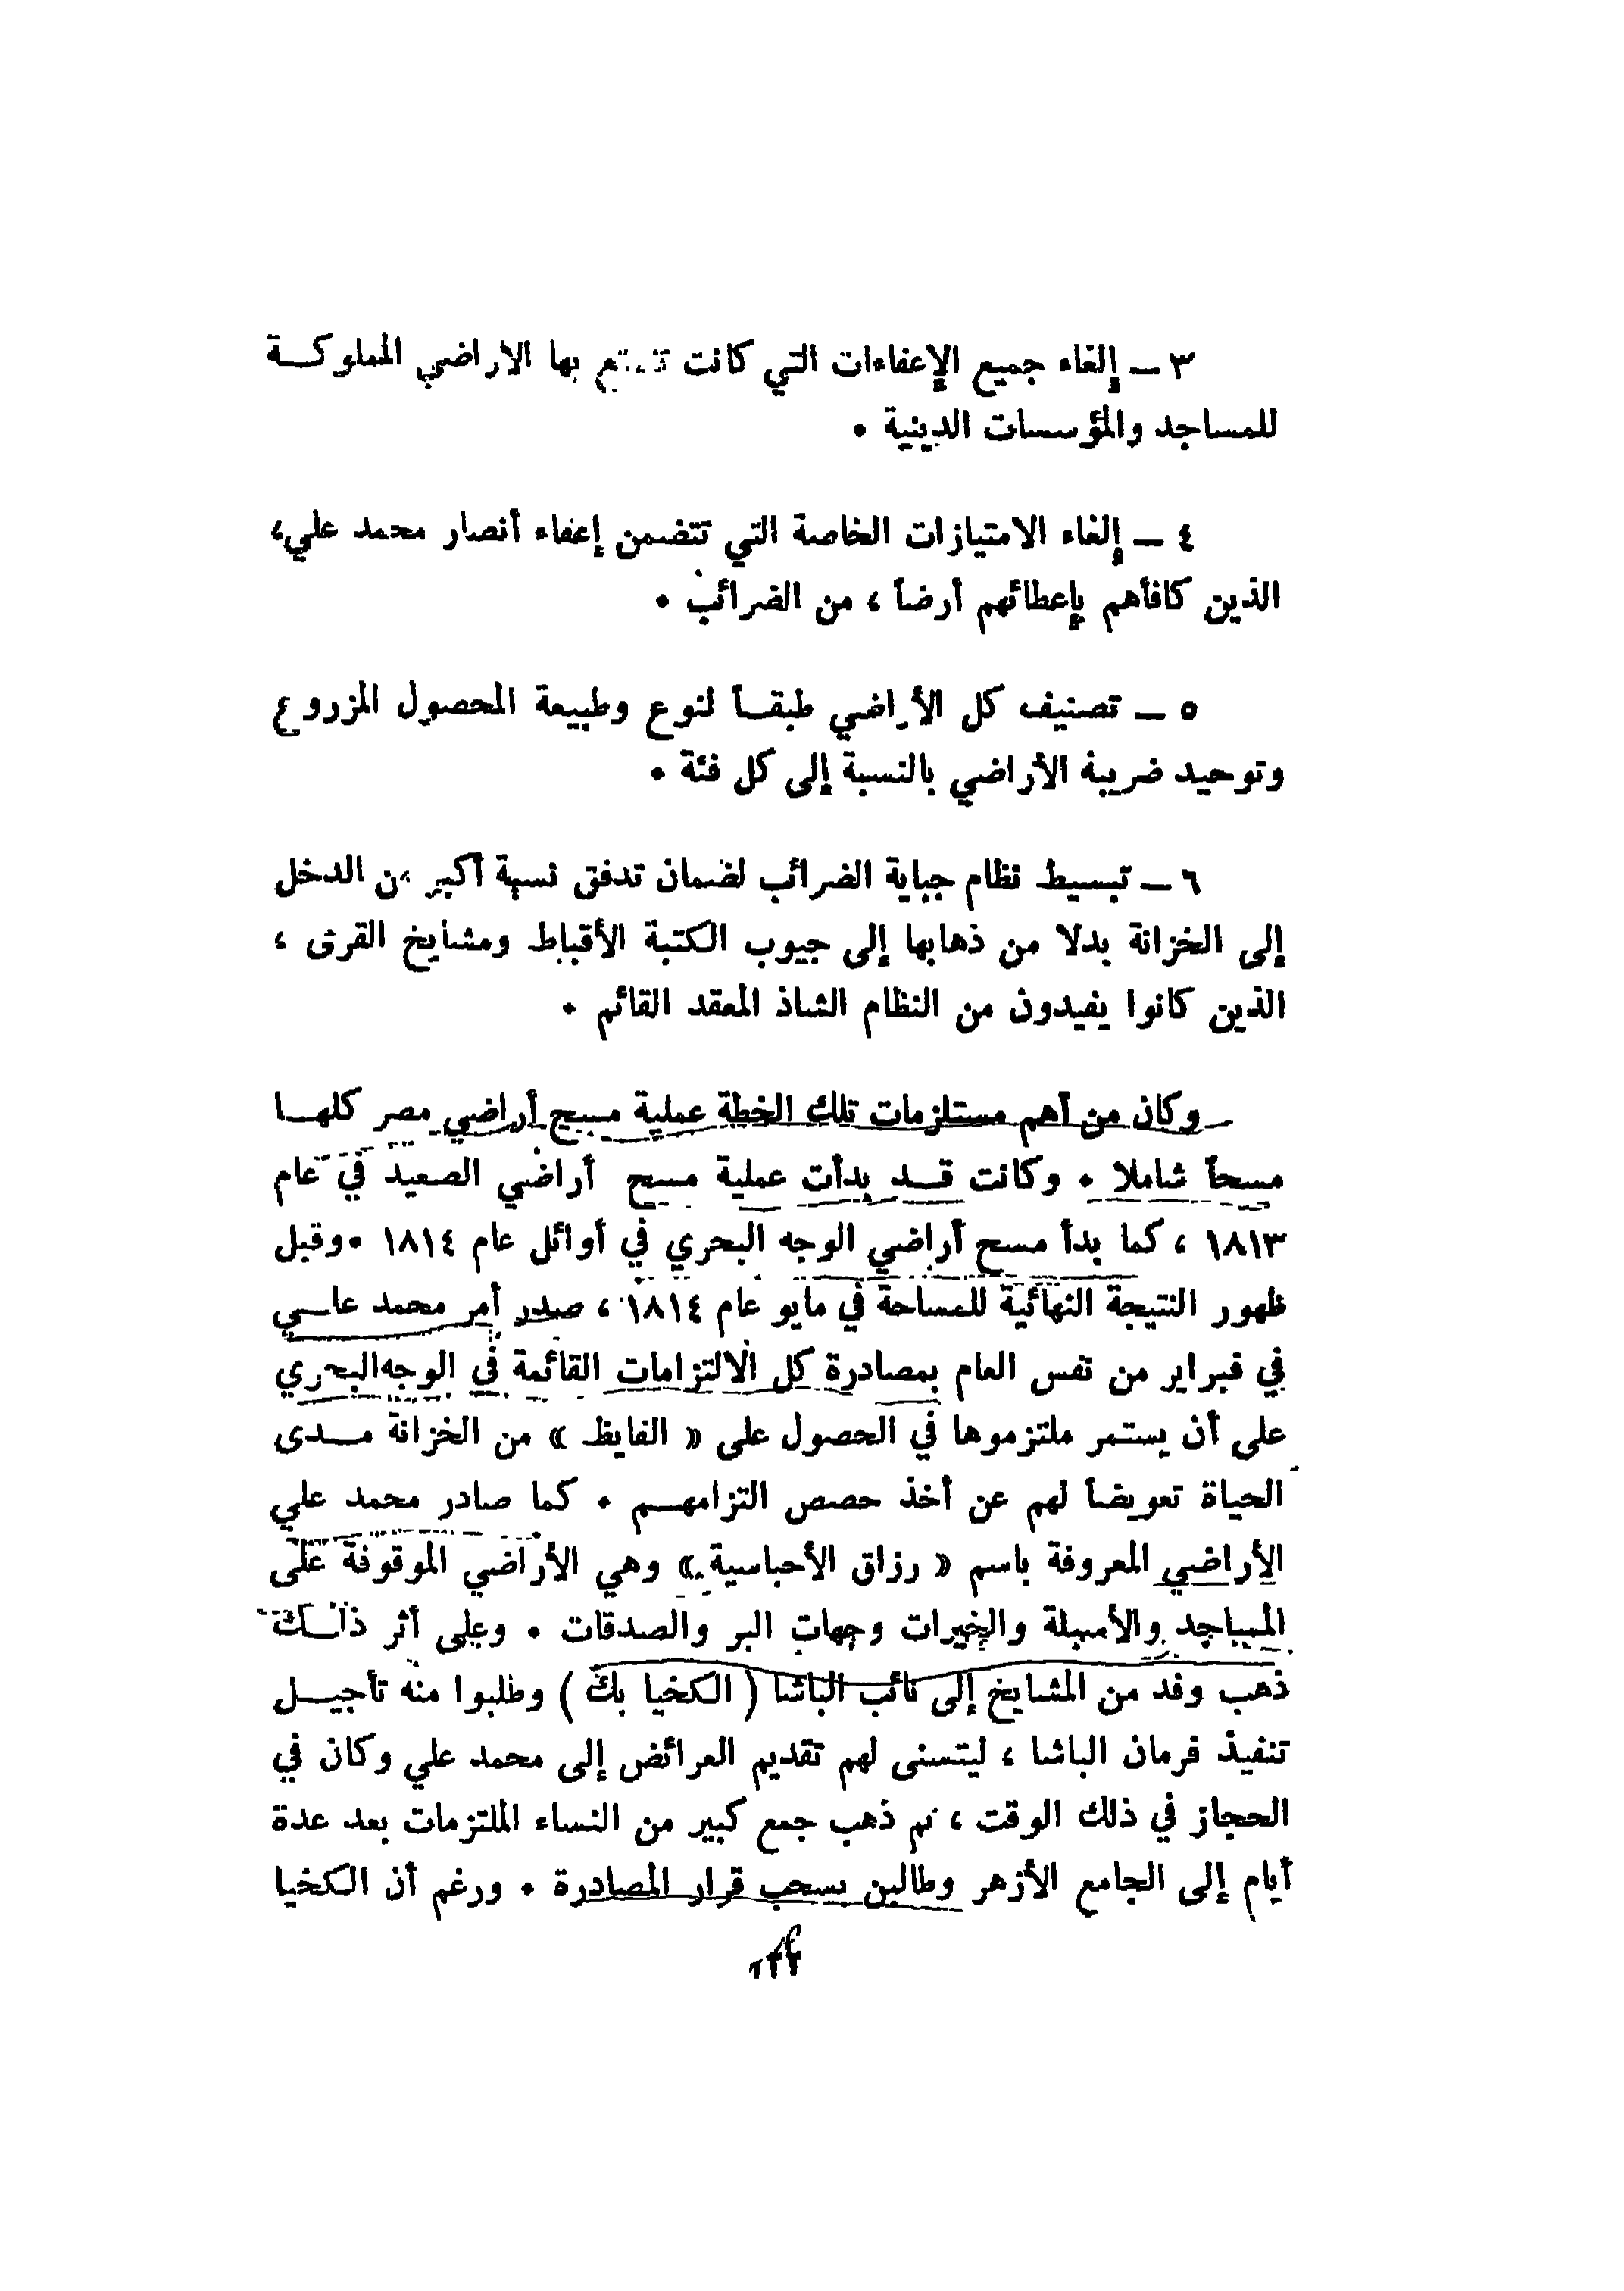 ٣ ــ إلغاء جميع الإعفاءات التي كانت تتمتع بها الأراضي المملوكة
للمساجد والمؤسسات الدينية .
٤ ــ إلغاء الامتيازات الخاصة التي تتضمن إعفاء أنصار محمد علي،
الذين كافأهم بإعطائهم أرضاً ، من الضرائب .
٥ ــ تصنيف كل الأراضي طبقاً لنوع وطبيعة المحصول المزروع
وتوحيد ضريبة الأراضي بالنسبة إلى كل فئة .
٦ ــ تبسيط نظام جباية الضرائب لضمان تدفق نسبة أكبر من الدخل
إلى الخزانة بدلا من ذهابها إلى جيوب الكتبة الأقباط ومشايخ القرى ،
الذين كانوا يفيدون من النظام الشاذ المعقد القائم .
وكان من أهم مستلزمات تلك الخطة عملية مسح أراضي مصر كلها
مسحاً شاملا . وكانت قد بدأت عملية مسح أراضي الصعيد في عام
١٨١٣ ، كما بدأ مسح أراضي الوجه البحري في أوائل عام ١٨١٤ . وقبل
ظهور النتيجة النهائية للمساحة في مايو عام ١٨١٤ ، صدر أمر محمد علي
في فبراير من نفس العام بمصادرة كل الالتزامات القائمة في الوجه البحري
على أن يستمر ملتزموها في الحصول على « الفايظ » من الخزانة مدى
الحياة تعويضاً لهم عن أخذ حصص التزامهم . كما صادر محمد علي
الأراضي المعروفة باسم « رزاق الأحباسية » وهي الأراضي الموقوفة على
المساجد والأسبلة والخيرات وجهات البر والصدقات . وعلى أثر ذلك
ذهب وفد من المشايخ إلى نائب الباشا ( الكخيا بك ) وطلبوا منه تأجيل
تنفيذ فرمان الباشا ، ليتسنى لهم تقديم العرائض إلى محمد علي وكان في
الحجاز في ذلك الوقت ، ثم ذهب جمع كبير من النساء الملتزمات بعد عدة
أيام إلى الجامع الأزهر وطالبن بسحب قرار المصادرة . ورغم أن الكخيا